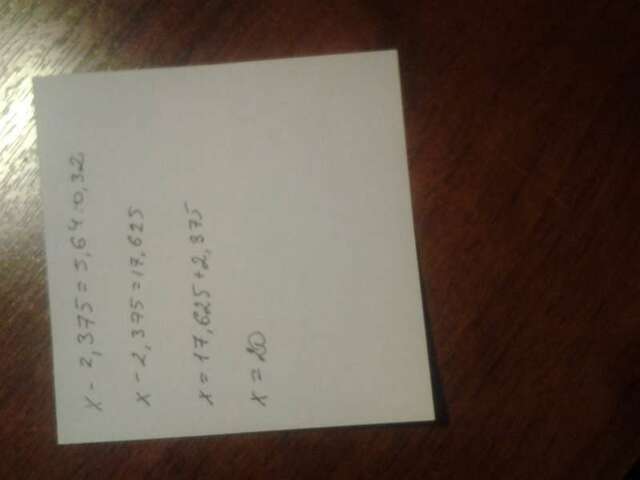 x - 2,375 = 5,64 : 0,32
x - 2,375 = 17,625
x = 17,625 + 2,375
x = 20